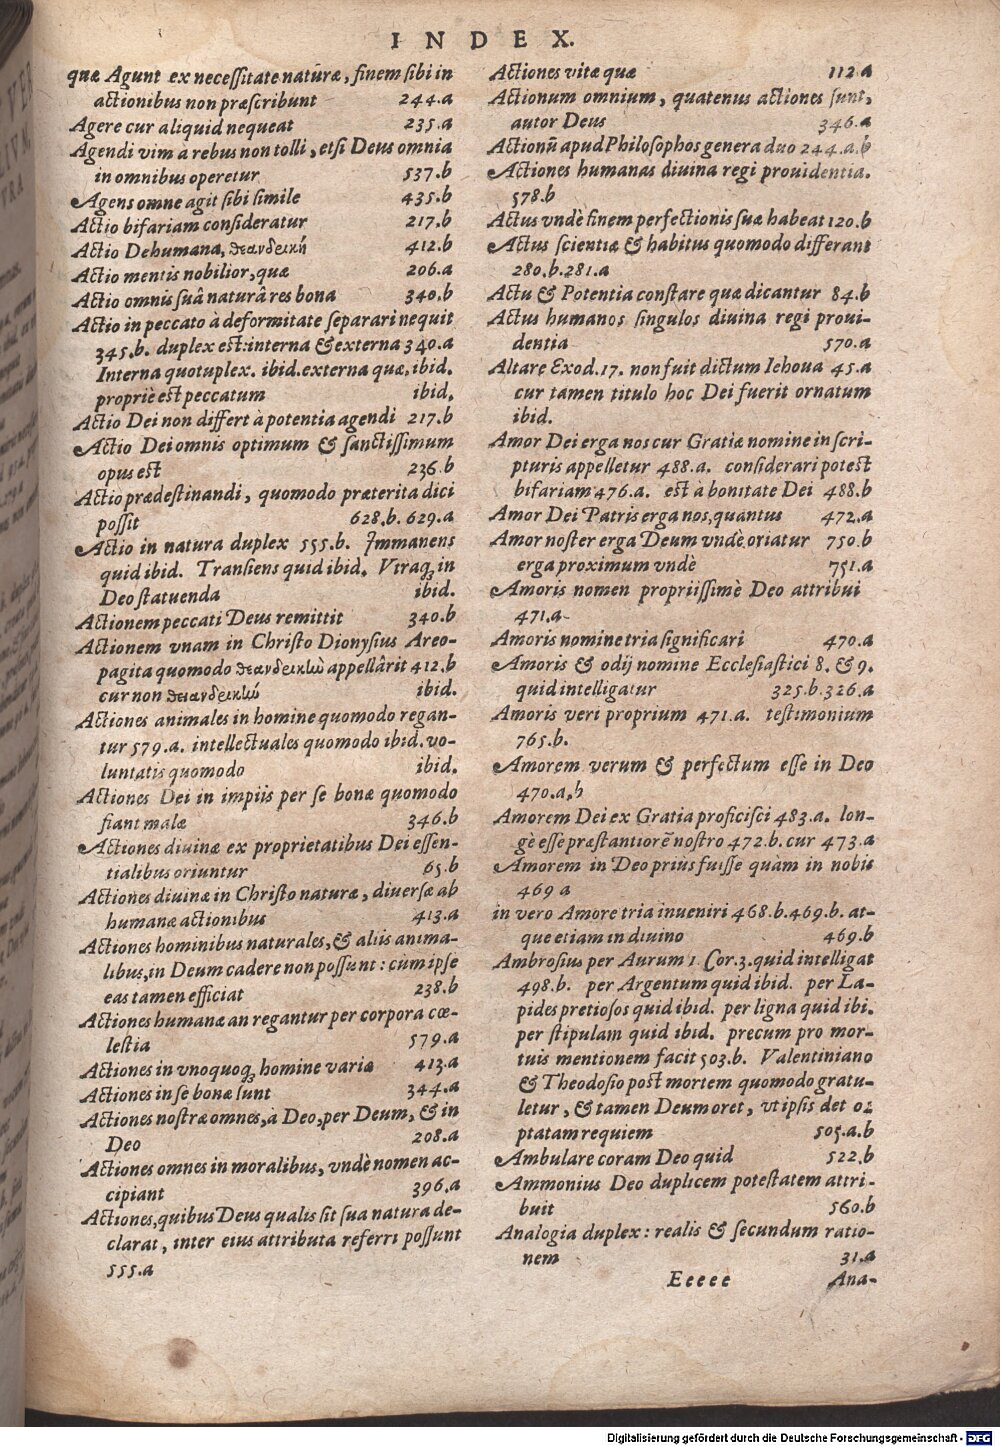 INDEX.
quæ Agunt ex necessitate naturæ, finem sibi in
actionibus non præscribunt 244.a
Agere cur aliquid nequeat 235.a
Agendi vim à rebus non tolli, etsi Deus omnia
in omnibus operetur 537.b
Agens omne agit sibi simile 435.b
Actio bifariam consideratur 217.b
Actio Dehumana, θεανδρική 412.b
Actio mentis nobilior, quæ 206.a
Actio omnis suâ naturâ res bona 340.b
Actio in peccato à deformitate separari nequit
345.b. duplex est: interna & externa 340.a
Interna quotuplex. ibid. externa quæ, ibid.
propriè est peccatum ibid.
Actio Dei non differt à potentia agendi 217.b
Actio Dei omnis optimum & sanctissimum
opus est 236.b
Actio prædestinandi, quomodo præterita dici
possit 628.b. 629.a
Actio in natura duplex 555.b. Immanens
quid ibid. Transiens quid ibid. Vtraq; in
Deo statuenda ibid.
Actionem peccati Deus remittit 340.b
Actionem vnam in Christo Dionysius Areo-
pagita quomodo θεανδρικὼ appellârit 412.b
cur non θεανδρικὼ ibid.
Actiones animales in homine quomodo regan-
tur 579.a. intellectuales quomodo ibid. vo-
luntatis quomodo ibid.
Actiones Dei in impiis per se bonæ quomodo
fiant malæ 346.b
Actiones diuinæ ex proprietatibus Dei essen-
tialibus oriuntur 65.b
Actiones diuinæ in Christo naturæ, diuersæ ab
humanæ actionibus 413.a
Actiones hominibus naturales, & aliis anima-
libus, in Deum cadere non possunt: cùm ipse
eas tamen efficiat 238.b
Actiones humanæ an regantur per corpora cœ-
lestia 579.a
Actiones in vnoquoq; homine variæ 413.a
Actiones in se bonæ sunt 344.a
Actiones nostræ omnes, à Deo, per Deum, & in
Deo 208.a
Actiones omnes in moralibus, vndè nomen ac-
cipiant 396.a
Actiones, quibus Deus qualis sit sua natura de-
clarat, inter eius attributa referri possunt
555.a
Actiones vitæ quæ 112.a
Actionum omnium, quatenus actiones sunt,
autor Deus 346.a
Actionũ apud Philosophos genera duo 244.a.b
Actiones humanas diuina regi prouidentia.
578.b
Actus vndè finem perfectionis suæ habeat 120.b
Actus scientiæ & habitus quomodo differant
280.b. 281.a
Actu & Potentia constare quæ dicantur 84.b
Actus humanos singulos diuina regi proui-
dentia 570.a
Altare Exod. 17. non fuit dictum Iehoua 45.a
cur tamen titulo hoc Dei fuerit ornatum
ibid.
Amor Dei erga nos cur Gratiæ nomine in scri-
pturis appelletur 488.a. considerari potest
bifariam 476.a. est à bonitate Dei 488.b
Amor Dei Patris erga nos, quantus 472.a
Amor noster erga Deum vndè oriatur 750.b
erga proximum vndè 751.a
Amoris nomen propriissimè Deo attribui
471.a.
Amoris nomine tria significari 470.a
Amoris & odij nomine Ecclesiastici 8. & 9.
quid intelligatur 325.b. 326.a
Amoris veri proprium 471.a. testimonium
765.b.
Amorem verum & perfectum esse in Deo
470.a,b
Amorem Dei ex Gratia proficisci 483.a. lon-
gè esse præstantiorẽ nostro 472.b. cur 473.a
Amorem in Deo priùs fuisse quàm in nobis
469 a
in vero Amore tria inueniri 468.b. 469.b. at-
que etiam in diuino 469.b
Ambrosius per Aurum 1 Cor. 3. quid intelligat
498.b. per Argentum quid ibid. per La-
pides pretiosos quid ibid. per ligna quid ibi.
per stipulam quid ibid. precum pro mor-
tuis mentionem facit 503.b. Valentiniano
& Theodosio post mortem quomodo gratu-
letur, & tamen Deum oret, vt ipsis det o-
ptatam requiem 505.a.b
Ambulare coram Deo quid 522.b
Ammonius Deo duplicem potestatem attri-
buit 560.b
Analogia duplex: realis & secundum ratio-
nem 31.a
Eeeee Ana-
Digitalisierung gefördert durch die Deutsche Forschungsgemeinschaft - DFG